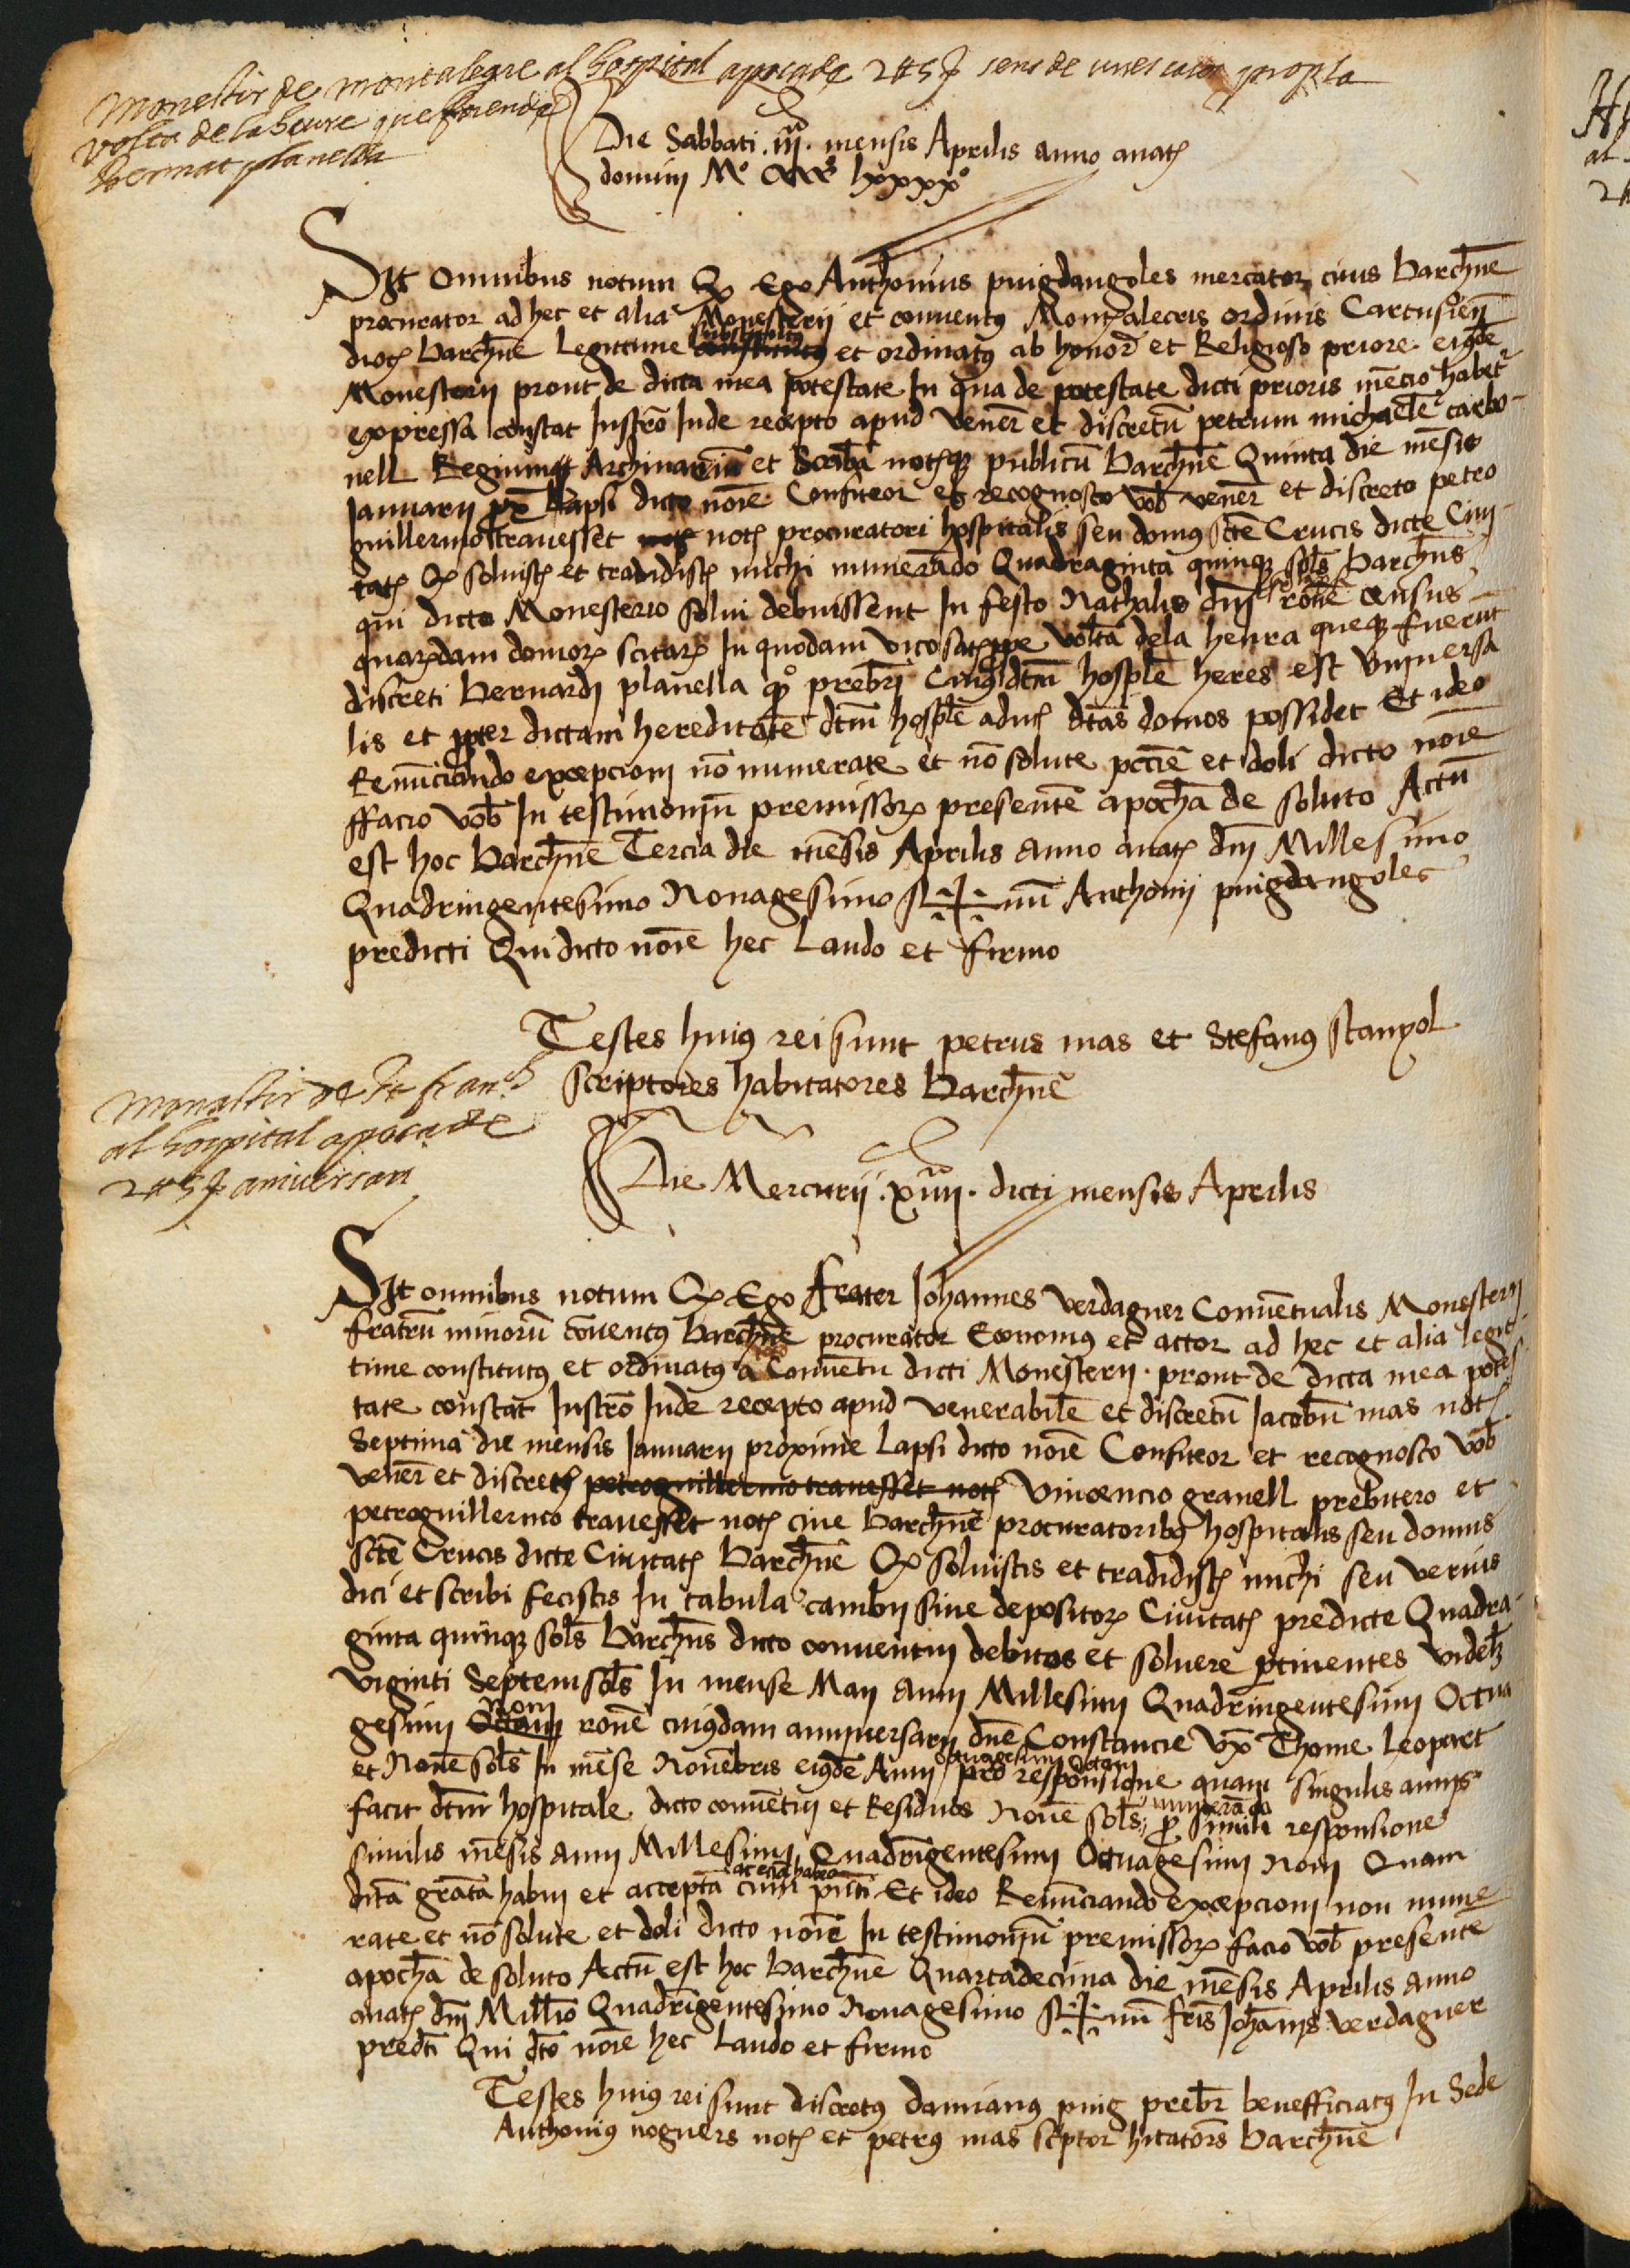 Monestir de montalegre al hospital apoca de 2 # 5 ſ sens de unes cases prop la
volta de la heura que foren de
bernat planella
Die Sabbati .iii. mensis Aprilis anno a natƺ
domini Mº CCCCº lxxxxº
Sit omnibus notum Qƺ Ego Anthonius puigdangoles mercator civis Barchñe
procurator ad hec et alia Monesterii et conventꝰ Montalecris ordinis Cartusieñ
diocƺ Barchñe legittime substitutꝰ constitutꝰ et ordinatꝰ ab honorˉ et Religioso priore eiꝰdē
Monesterii prout de dicta mea potestate In qua de potestate dicti prioris mēcio habetˀ
expressa constat Instrõ Inde recepto apud veneṝ et discretū petrum michaelē carbo-
nell Regium Archivariū et Scribā notƺqꝫ publicū Barchñe Quinta die mēsis
Januarii px̄ lapsi dicto noīe Confiteor et recognosco vob̄ veneṝ et discreto petro
guillermo travesset not notƺ procuratori hospitalis seu domꝰ Sctē Crucis dicte Civi-
tatƺ Qƺ solvistƺ et tradidistƺ michi numerādo Quadraginta quinqꝫ sol̄s Barchñs
qui dicto Monesterio solvi debuissent In festo Nathalis dn̄i ꝓ lapso rōne census
quarƺdam domorƺ scitarƺ In quodam vico satƺ ꝓpe volta de la heura queqꝫ fuerūt
discreti Bernardi planella qº prebrī Cuiꝰ dt̄m hosplē heres est Universa
lis et ꝓpter dictam hereditatē dt̄m hosplē adhuc dt̄as domos possidet Et ideo
Renūciando excepcioni nō numerate et nō solute pcc̄ie et doli dicto noīe
ffacio vob̄ In testimoniū premissorƺ presentē apochā de soluto Actū
est hoc Barchñe Tercia die mēsis Aprilis anno a natƺ dn̄i Millesimo
Quadringentesimo Nonagesimo Sig✝num Anthonii puigdangoles
predicti Qui dicto noīe hec Laudo et firmo
Testes huiꝰ rei sunt petrus mas et Stefanꝰ stanyol
scriptores habitatores Barchñe
Monastir de St franch
al hospital apoca de
2 # 5 ſ aniversari
Die Mercurii .xiiii. dicti mensis Aprilis
Sit omnibus notum Qƺ Ego frater Johannes verdaguer Convētualis Monesterii
fratrū minorū cōventꝰ Barchñe procurator Economꝰ et actor ad hec et alia legit-
time constitutꝰ et ordinatꝰ a Convētu dicti Monesterii prout de dicta mea potes
tate constat Instrõ Inde recepto apud venerabilē et discretū Jacobū mas notƺ
Septima die mensis Januarii proxime lapsi dicto noīe Confiteor et recognosco vob̄
veneṝ et discretƺ petroguillermo travesset notƺ Vincencio granell prebitero et
petroguillermo travesset notƺ cive Barchñe procuratoribꝰ hospitalis seu domus
Sctē Crucis dicte Civitatƺ Barchñe Qƺ solvistis et tradidistƺ michi seu verius
dici et scribi fecistis In tabula cambii sive depositorƺ Civitatƺ predicte Quadra-
ginta quinqꝫ sol̄s Barchñs dicto conventui debitos et solvere ꝑtinentes videlƺ
viginti Septem sol̄s In mense Maii Anni Millesimi Quadringentesimi Octua
gesimi Octavi Noni rōne cuiꝰdam anniversarii dn̄e Constancie ux̄ Thome leopart
et Novē sol̄s In mēse Novēbris eiꝰdē Anni octuagesimi octavi pro responsione quam singulis annis
facit dt̄m hospitale dicto convētui et Residuos Novē sol̄s numerādo ꝓ simili responsione
similis mēsis anni Millesimi Quadrīngentesimi Octuagesimi noni Quam
dt̄ā grātā habui et acceptā ac eciā habeo cum p̄nti Et ideo Renūciando excepcioni non nume
rate et nō solute et doli dicto noīe In testimoniū premissorƺ facio vob̄ presentē
apochā de soluto Actū est hoc Barchñe Quartadecima die mēsis Aprilis anno
a natƺ dn̄i Mill̄io Quadrīngentesimo Nonagesimo Sig✝num fr̄is Johānis verdaguer
predt̄i Qui dt̄o noīe hec Laudo et firmo
Testes huiꝰ rei sunt discretꝰ damianꝰ puig prebr̄ benefficiatꝰ In Sede
Anthoniꝰ noguers notƺ et petrꝰ mas sc̄ptor hītatōrs Barchñe